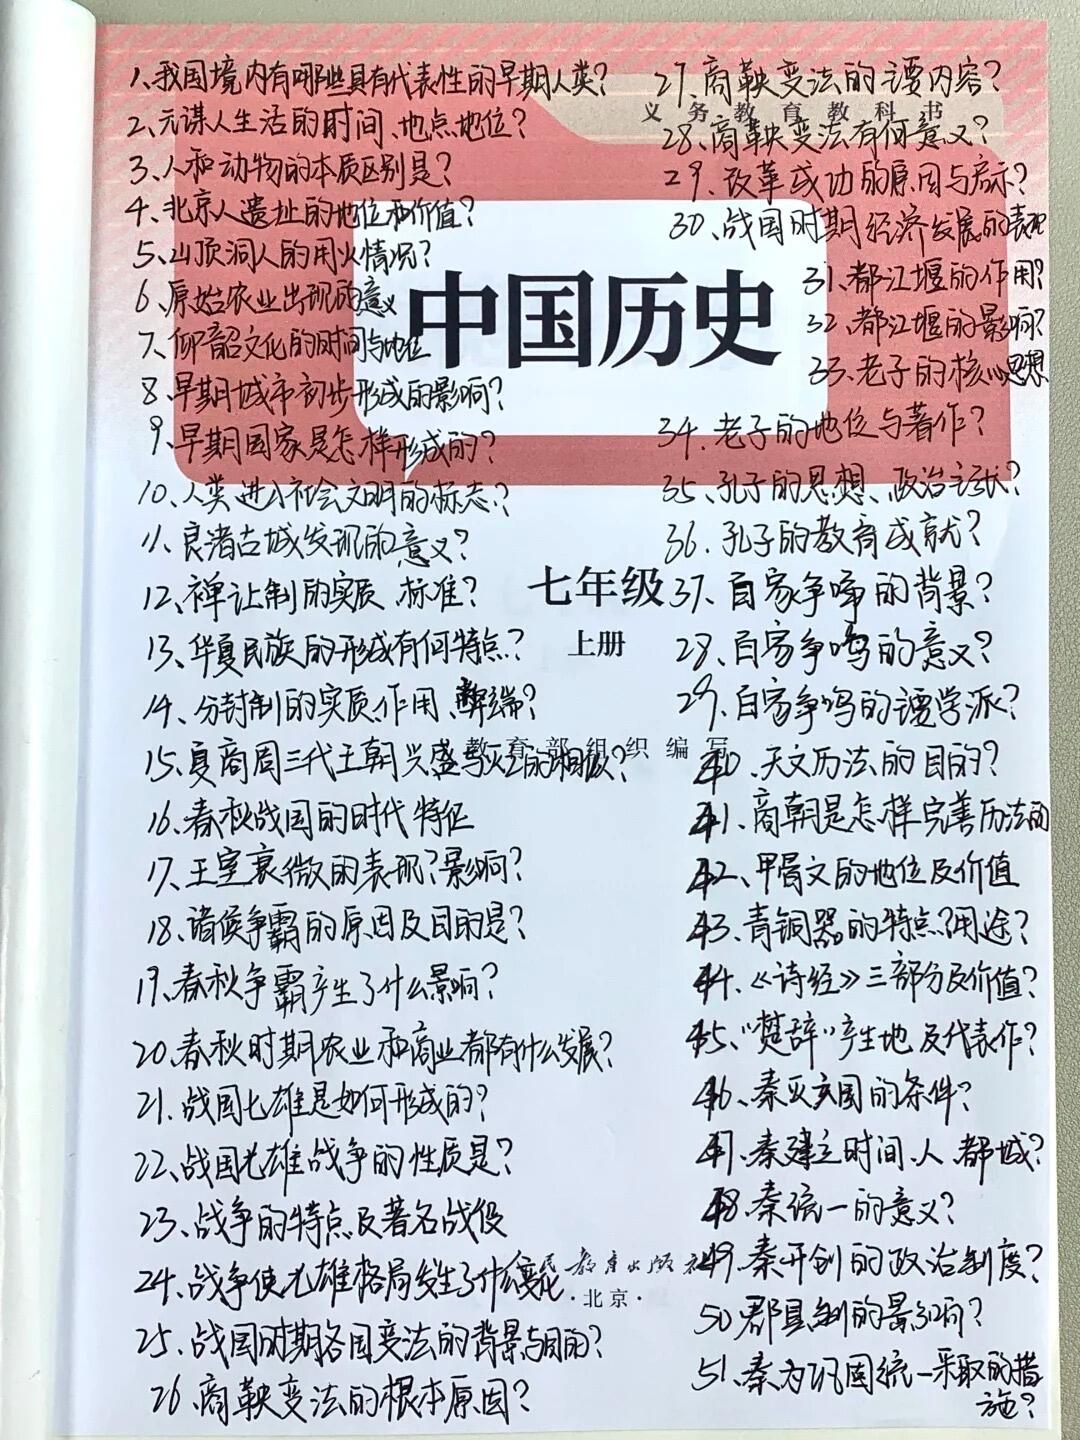 1、我国境内有哪些具有代表性的早期人类？
2、元谋人生活的时间、地点、地位？
3、人和动物的本质区别是？
4、北京人遗址的地位和价值？
5、山顶洞人的用火情况？
6、原始农业出现的意义
7、仰韶文化的时间与地位
8、早期城市初步形成的影响？
9、早期国家是怎样形成的？
10、人类进入社会文明的标志？
11、良渚古城发现的意义？
12、禅让制的实质、标准？
13、华夏民族的形成有何特点？
14、分封制的实质、作用、弊端？
15、夏商周三代王朝兴盛与灭亡的相似？
16、春秋战国的时代特征
17、王室衰微的表现？影响？
18、诸侯争霸的原因及目的是？
19、春秋争霸产生了什么影响？
20、春秋时期农业和商业都有什么发展？
21、战国七雄是如何形成的？
22、战国七雄战争的性质是？
23、战争的特点及著名战役
24、战争使七雄格局发生了什么变化
25、战国时期各国变法的背景与目的？
26、商鞅变法的根本原因？
义务教育教科书
中国历史
七年级
上册
教育部组织编写
民教育出版社
·北京·
27、商鞅变法的主要内容？
28、商鞅变法有何意义？
29、改革成功的原因与启示？
30、战国时期经济发展的表现
31、都江堰的作用？
32、都江堰的影响？
33、老子的核心思想
34、老子的地位与著作？
35、孔子的思想、政治主张？
36、孔子的教育成就？
37、百家争鸣的背景？
28、百家争鸣的意义？
29、百家争鸣的主要学派？
40、天文历法的目的？
41、商朝是怎样完善历法的
42、甲骨文的地位及价值
43、青铜器的特点？用途？
44、《诗经》三部分及价值？
45、“楚辞”产生地及代表作？
46、秦灭六国的条件？
47、秦建立时间、人、都城？
48、秦统一的意义？
49、秦开创的政治制度？
50 郡县制的影响？
51、秦为巩固统一采取的措
施？